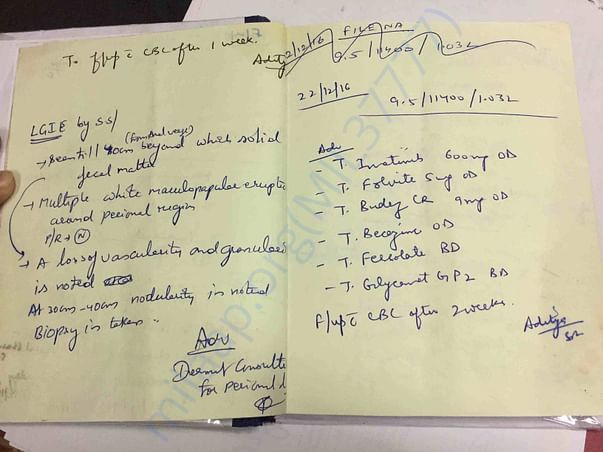 To f/up c̄ CBC after 1 week.
LGIE by SS/
(from Anal verge)
→ Seen till 40cm beyond which solid
fecal matter
→ Multiple white maculopapular erupti
around perianal region
P/R → (N)
→ A loss of vascularity and granular
is noted
At 30cm-40cm nodularity is noted
Biopsy is taken
Adv
Dermat Consult
for perianal
Aditya
2/12/16 FILE NA
9.5/11400/1.03L
22/12/16
9.5/11400/1.03L
Adv
- T. Imatinib 600mg OD
- T. Folvite 5mg OD
- T. Budez CR 9mg OD
- T. Becozinc OD
- T. Fercolate BD
- T. Glycomet GP2 BD
F/up c̄ CBC after 2 weeks.
Aditya
SR
milaap.org